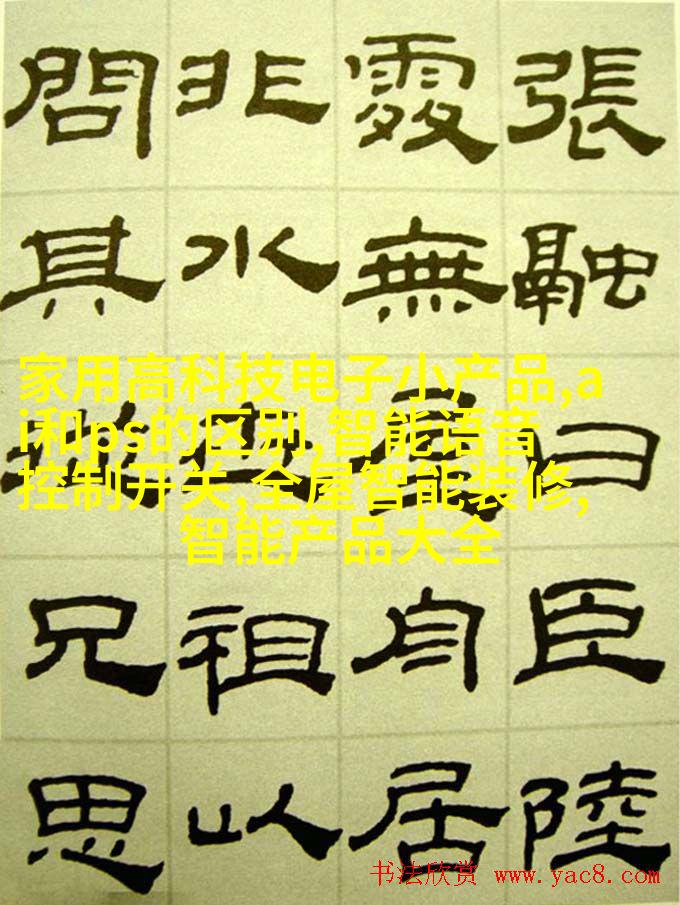 張融曰臣陸
處無舟居
非水世祖以
問其兄思
家用高科技电子小产品,a
i和ps的区别,智能语音
控制开关,全屋智能装修,
智能产品大全
书法欣赏 www.yac8.com